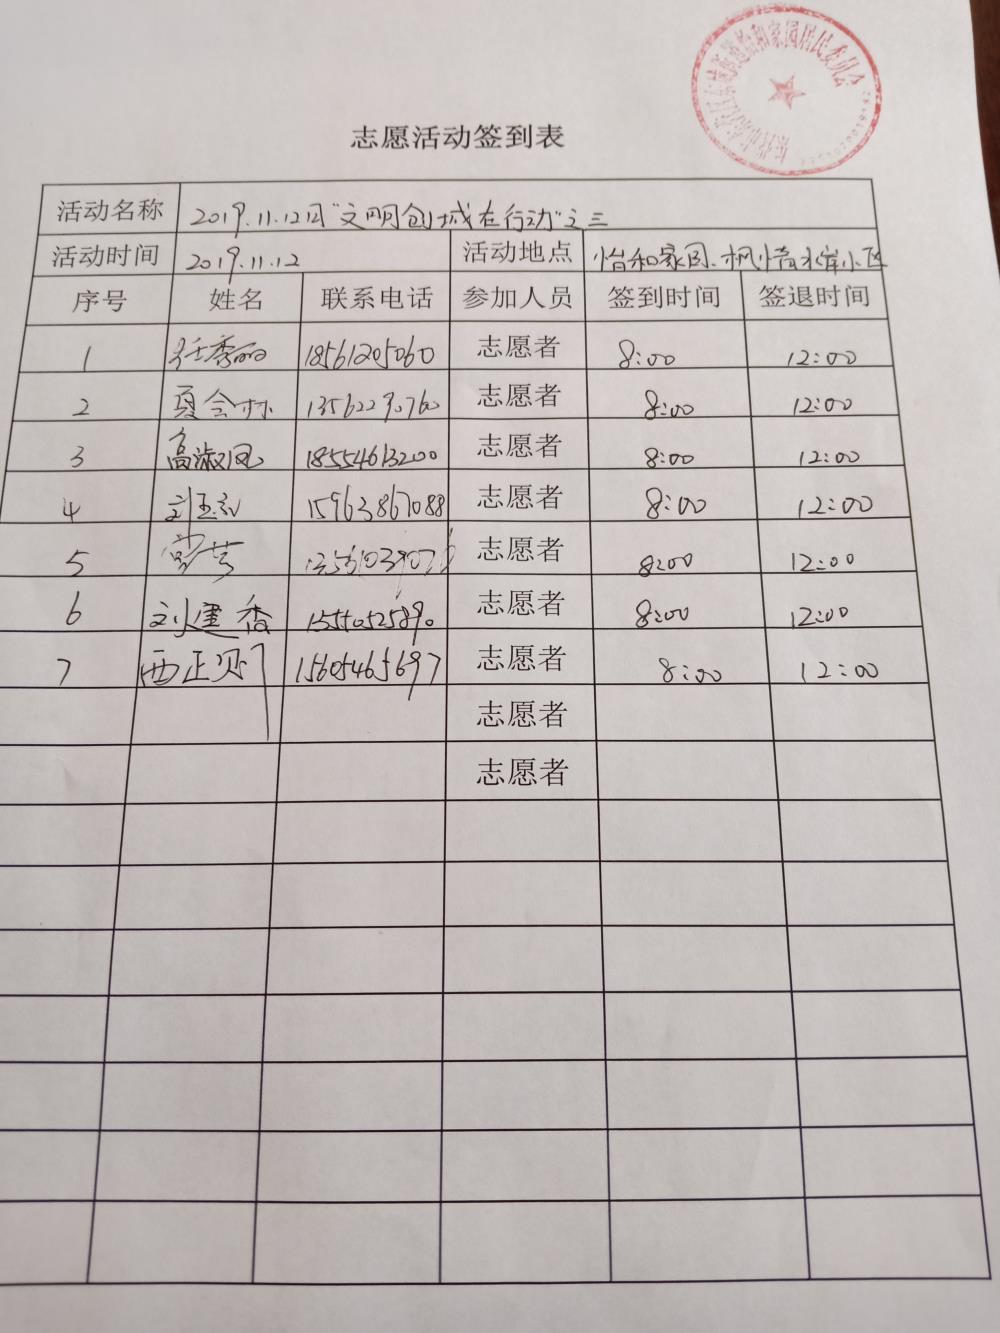 志愿活动签到表
活动名称 2019.11.12日"文明创城在行动"之三
活动时间 2019.11.12 活动地点 怡和家园、枫情水岸小区
序号 姓名 联系电话 参加人员 签到时间 签退时间
1 任秀丽 18561205060 志愿者 8:00 12:00
2 夏会林 13562290760 志愿者 8:00 12:00
3 高淑凤 18554613200 志愿者 8:00 12:00
4 15963867088 志愿者 8:00 12:00
5 志愿者 8:00 12:00
6 刘建香 15550525890 志愿者 8:00 12:00
7 15605465697 志愿者 8:00 12:00
志愿者
志愿者